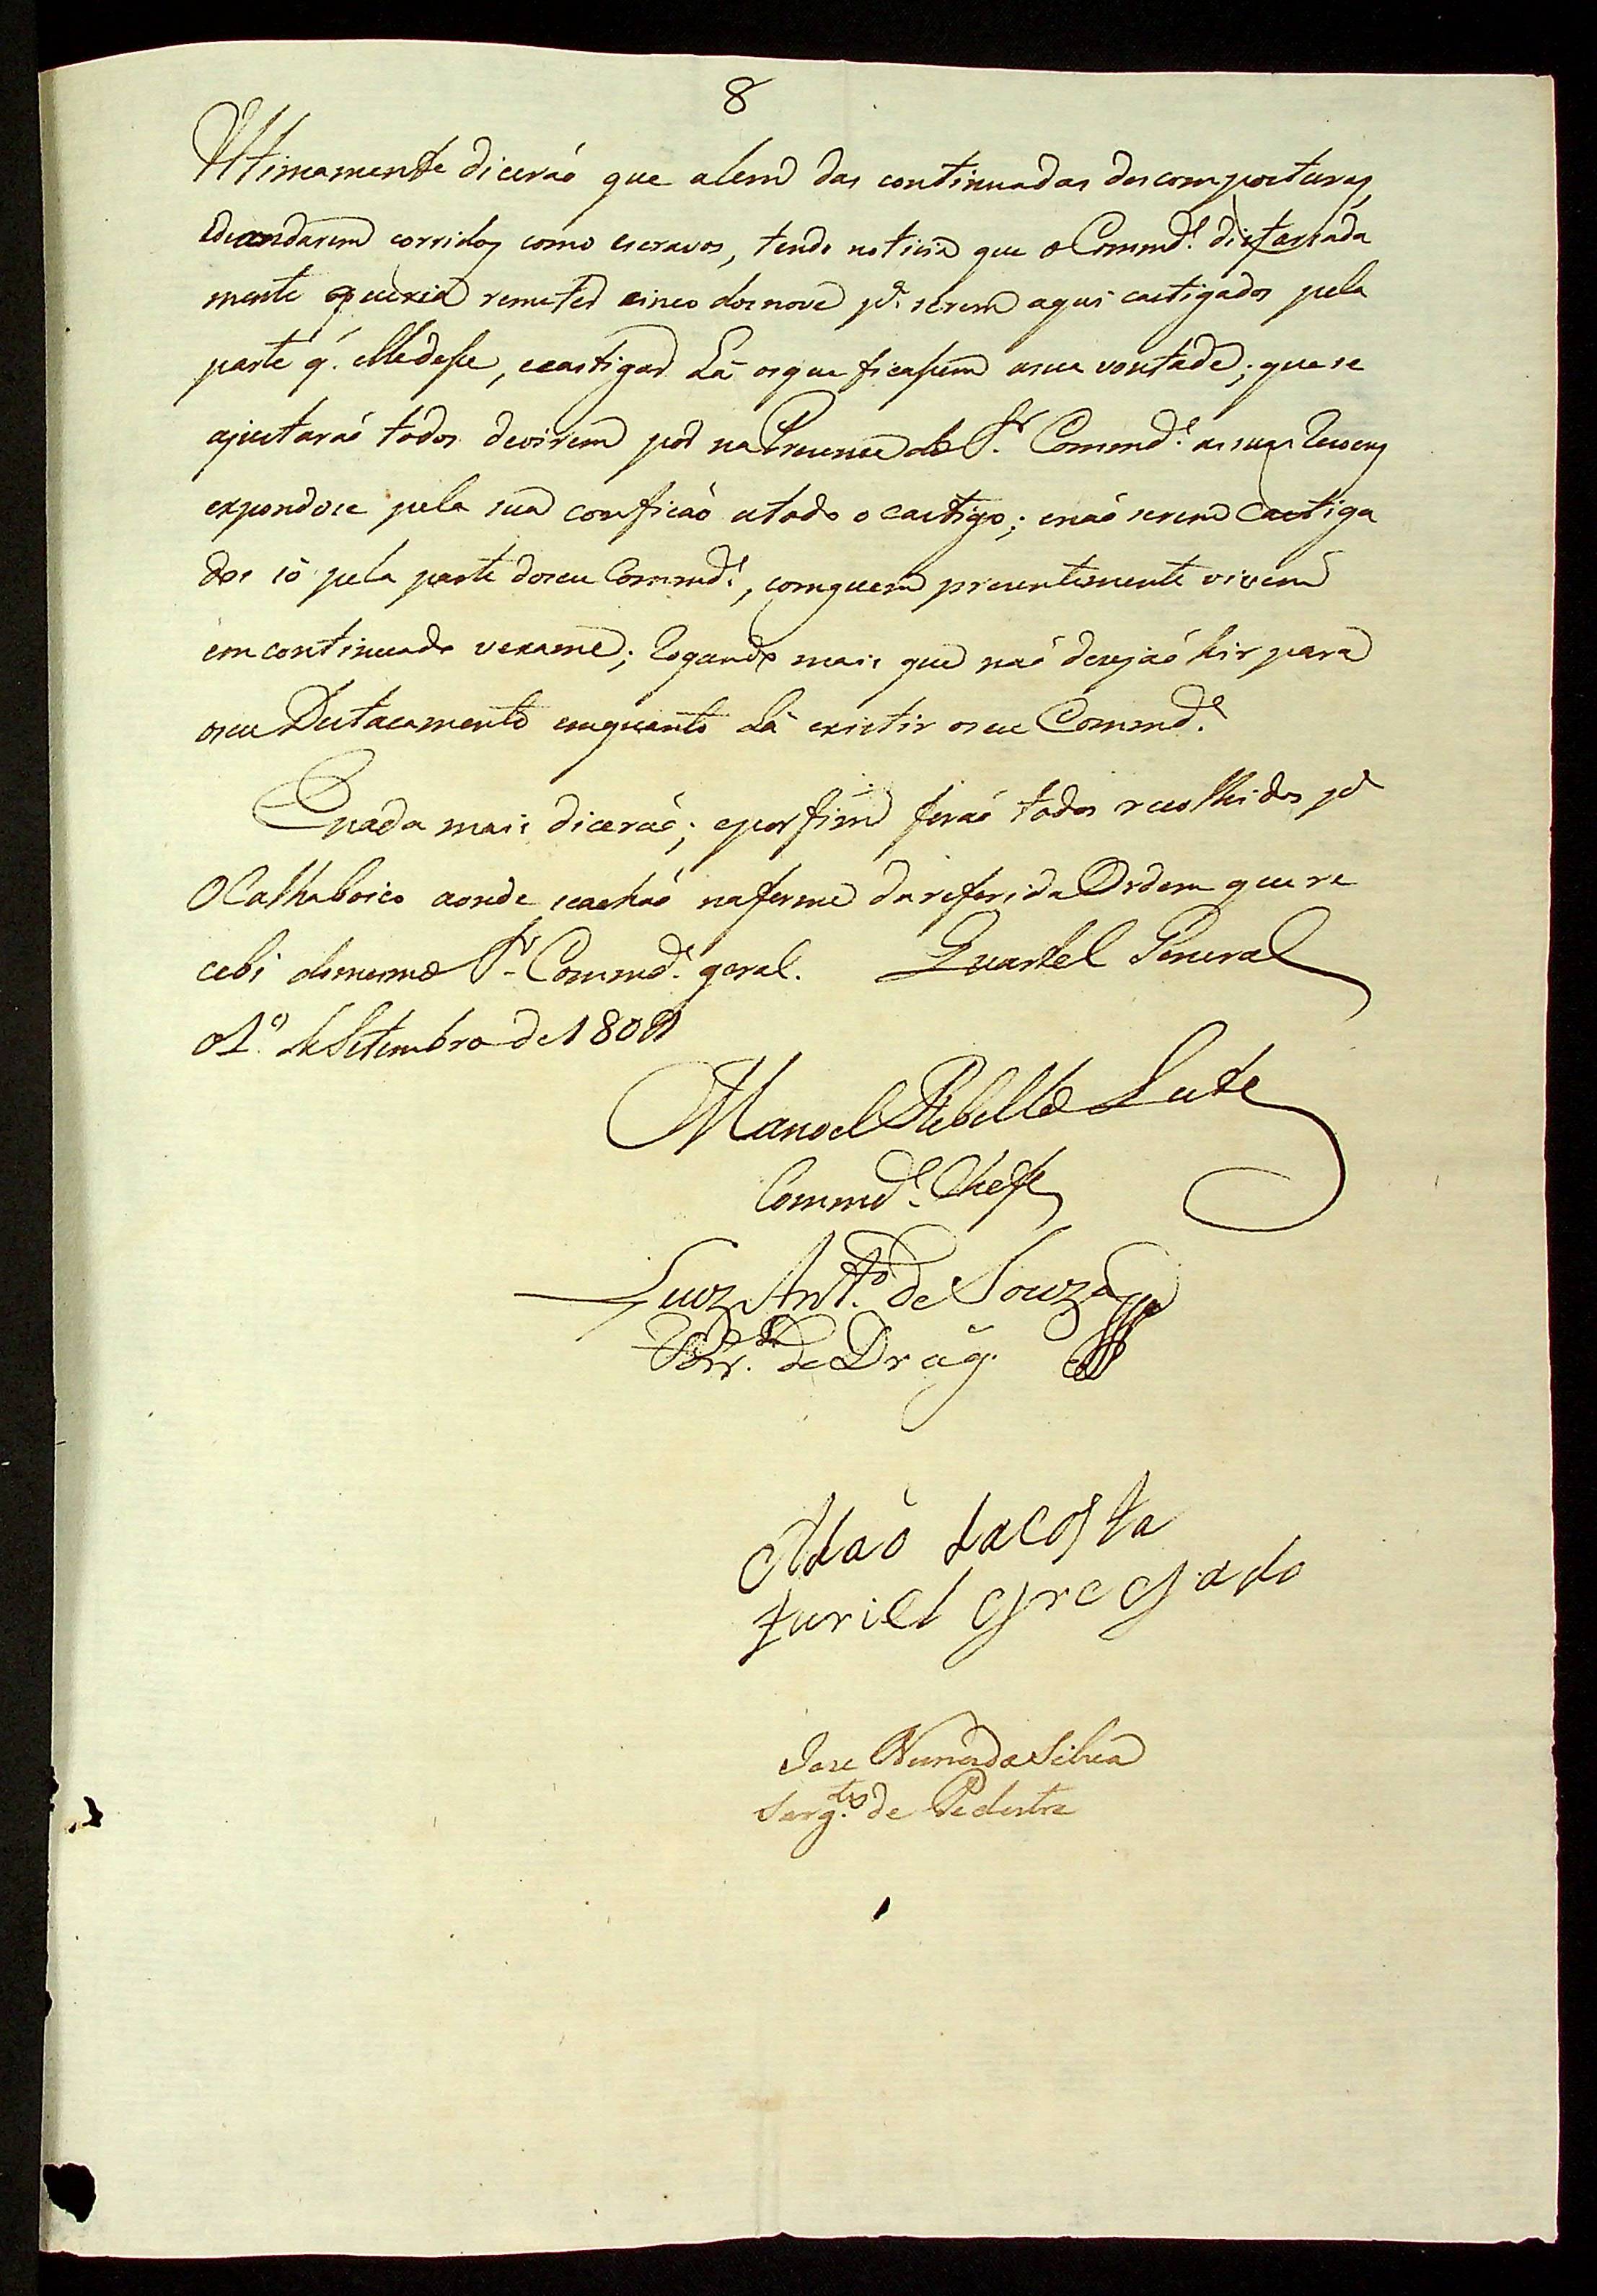 8
Ultimamente dicerão que alem das continuadas descomposturas,
edeandarem corridos como escravos, tendo noticia que o Commd.e disfarsada
mente queria remeter cinco dos nove p.a serem aqui castigados pela
parte q. elle desse, ecastigar Lá osque ficassem asua vontade; que se
ajustarão todos devirem pôr na Presença do S.r Commd.e as suas Rezoens
expondose pela sua confição atodo o castigo; enão serem Castiga
dos só pela parte doseu Commd.e, comquem prezentemente vivem
em continuado vexame; Rogando mais que não dezejão hir para
oseu Destacamento emquanto Lá existir oseu Commd.e
Enada mais dicerão; eporfim forão todos recolhidos p.a
O Calhaboico aonde seachão naforma dareferida Ordem que re
cebi domesmo S.r Commd.e geral. Quartel General
o 1.o de Setembro de 1801
Manoel Rebello Leite
Commd.e Chefe
Luiz Ant.o de Souza
de Drag.
Adaõ dacosta
furiel Gregado
Joze Nunes da Silva
Sarg.to de Pedestre